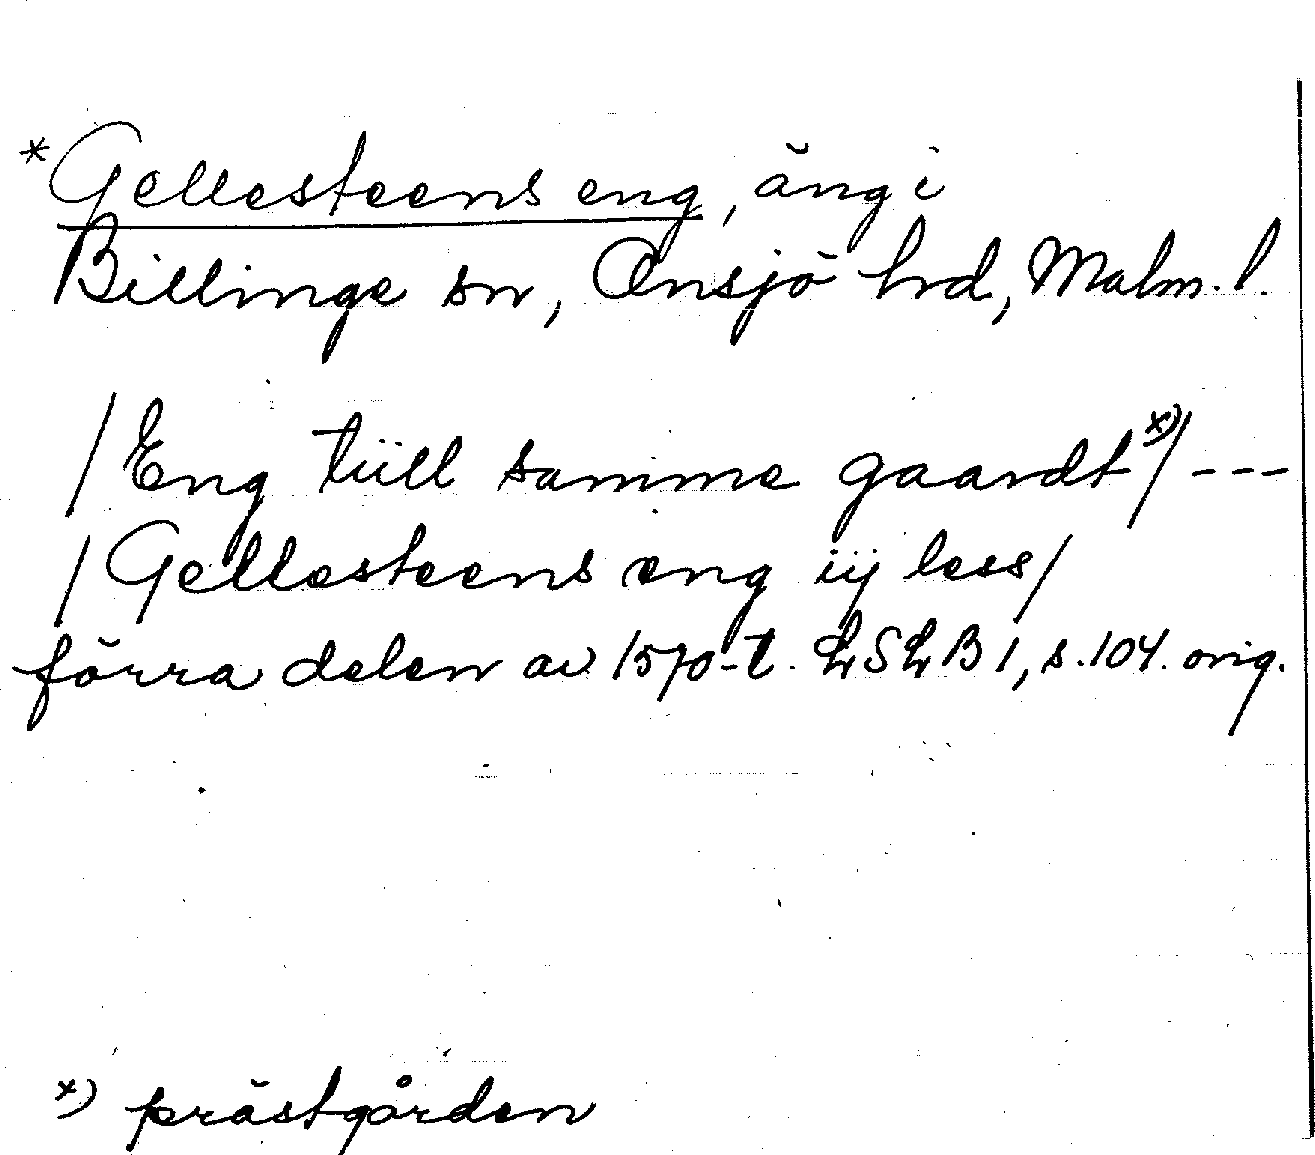 *Gellesteens eng, äng i
Billinge sn, Onsjö hrd, Malm. l.
/Eng tiill samme gaardt *)/ ---
/Gellesteens eng iij less/
förra delen av 1570-t. LSLB 1, s. 104. orig.
*) prästgården